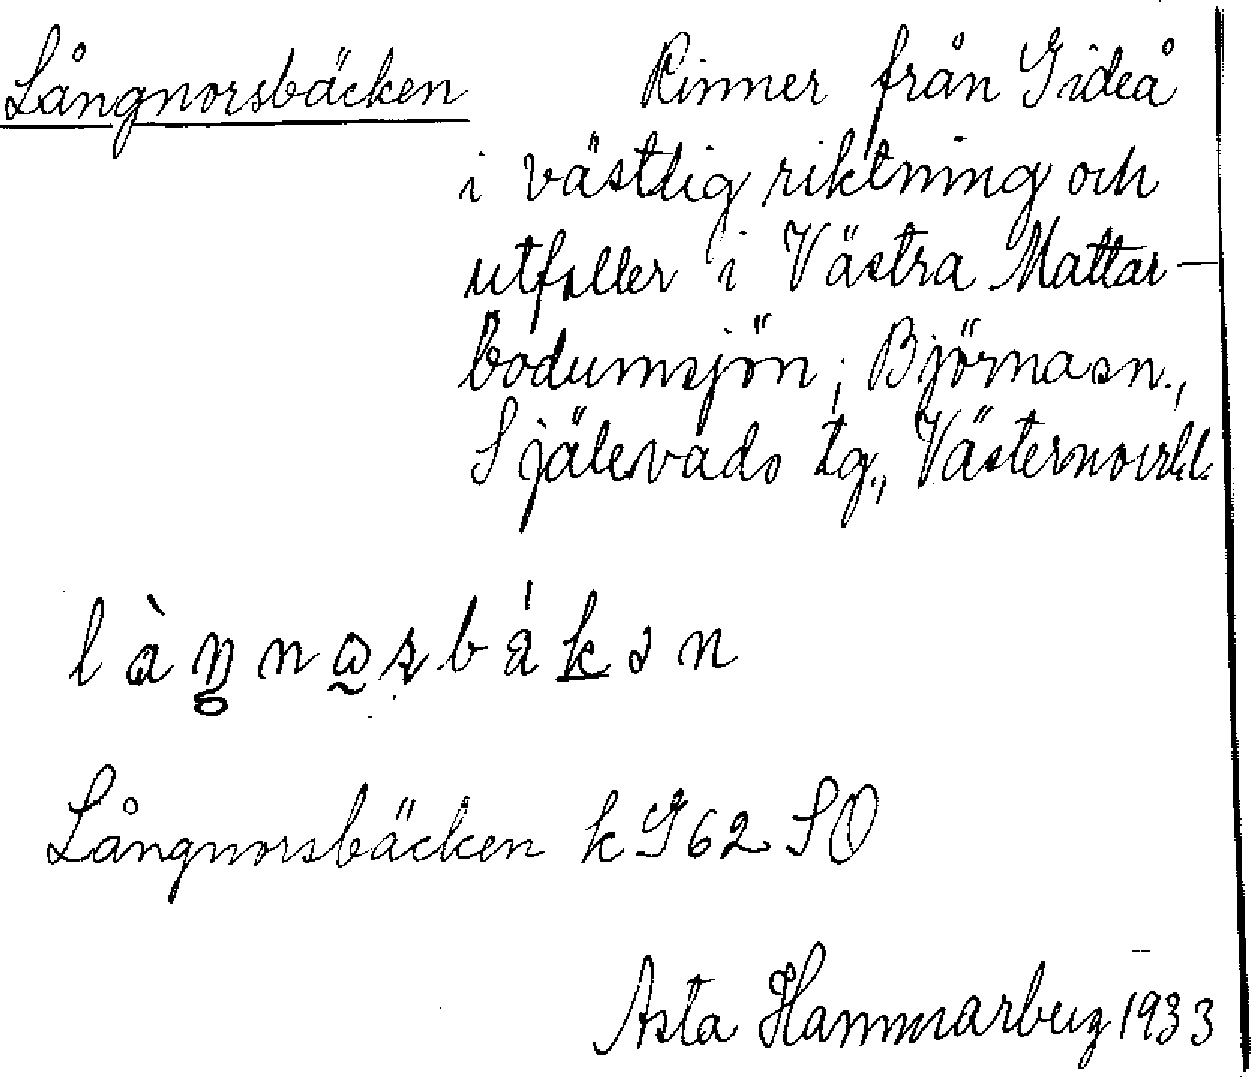 Långnorsbäcken Rinner från Gideå
i västlig riktning och
utfaller i Västra Mattar-
bodumsjön; Björnasn.,
Själevads tg., Västernorrl.
Långnorsbäcken k G62 SO
Asta Hammarberg 1933